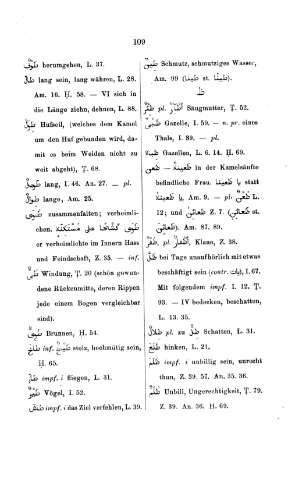 109
طَوَّفَ herumgehen, L. 37.
طَالَ lang sein, lang währen, L. 28.
Am. 16. H. 58. — VI sich in
die Länge ziehn, dehnen, L. 88.
Hufseil, (welches dem Kamel
um den Huf gebunden wird, da-
mit es beim Weiden nicht zu
weit abgeht), T. 68.
طَوِيلٌ lang, I. 46. An. 27. — pl.
طِوَالٌ lange, Am. 25.
طَوَى zusammenfalten; verheimli-
chen.
er verheimlichte im Innern Hass
und Feindschaft, Z. 35. — inf.
طَىٌّ Windung, T. 20 (schön gewun-
dene Rückenmitte, deren Rippen
jede einem Bogen vergleichbar
sind).
Brunnen, H. 54.
inf. stolz, hochmüthig sein,
H. 65.
impf. i fliegen, L. 31.
طَيْرٌ Vögel, I. 52.
impf. i das Ziel verfehlen, L. 39.
طِينٌ Schmutz, schmutziges Wasser,
Am. 99 (طِينَا st. طِينًا).
ظ
pl. أَظْآرٌ Säugmutter, T. 52.
ظَبْىٌ Gazelle, I. 59. — n. pr. eines
Thals, I. 89. — pl.
ظِبَاءٌ Gazellen, L. 6. 14. H. 69.
ظَعَنَ — ظَعِينَةٌ in der Kamelsänfte
befindliche Frau. يا ظَعِينَا statt
يا ظَعِينَةُ Am. 9. — pl. ظُعُنٌ L.
12; und ظَعَائِنُ Z. 7. (ظعائنٍ st.
ظَعَائِنَ). Am. 87. 89.
ظُفُرٌ pl. أَظْفَارٌ, Klaue, Z. 38.
ظَلَّ bei Tage unaufhörlich mit etwas
beschäftigt sein (contr. بات), I. 67.
Mit folgendem impf. I. 12. T.
93. — IV bedecken, beschatten,
L. 13. 35.
ظِلَالٌ pl. zu ظِلٌّ Schatten, L. 31.
ظَلَعَ hinken, L. 21.
ظَلَمَ impf. i unbillig sein, unrecht
thun, Z. 39. 57. An. 35. 36.
ظُلْمٌ Unbill, Ungerechtigkeit, T. 79.
Z. 39. An. 36. H. 69.